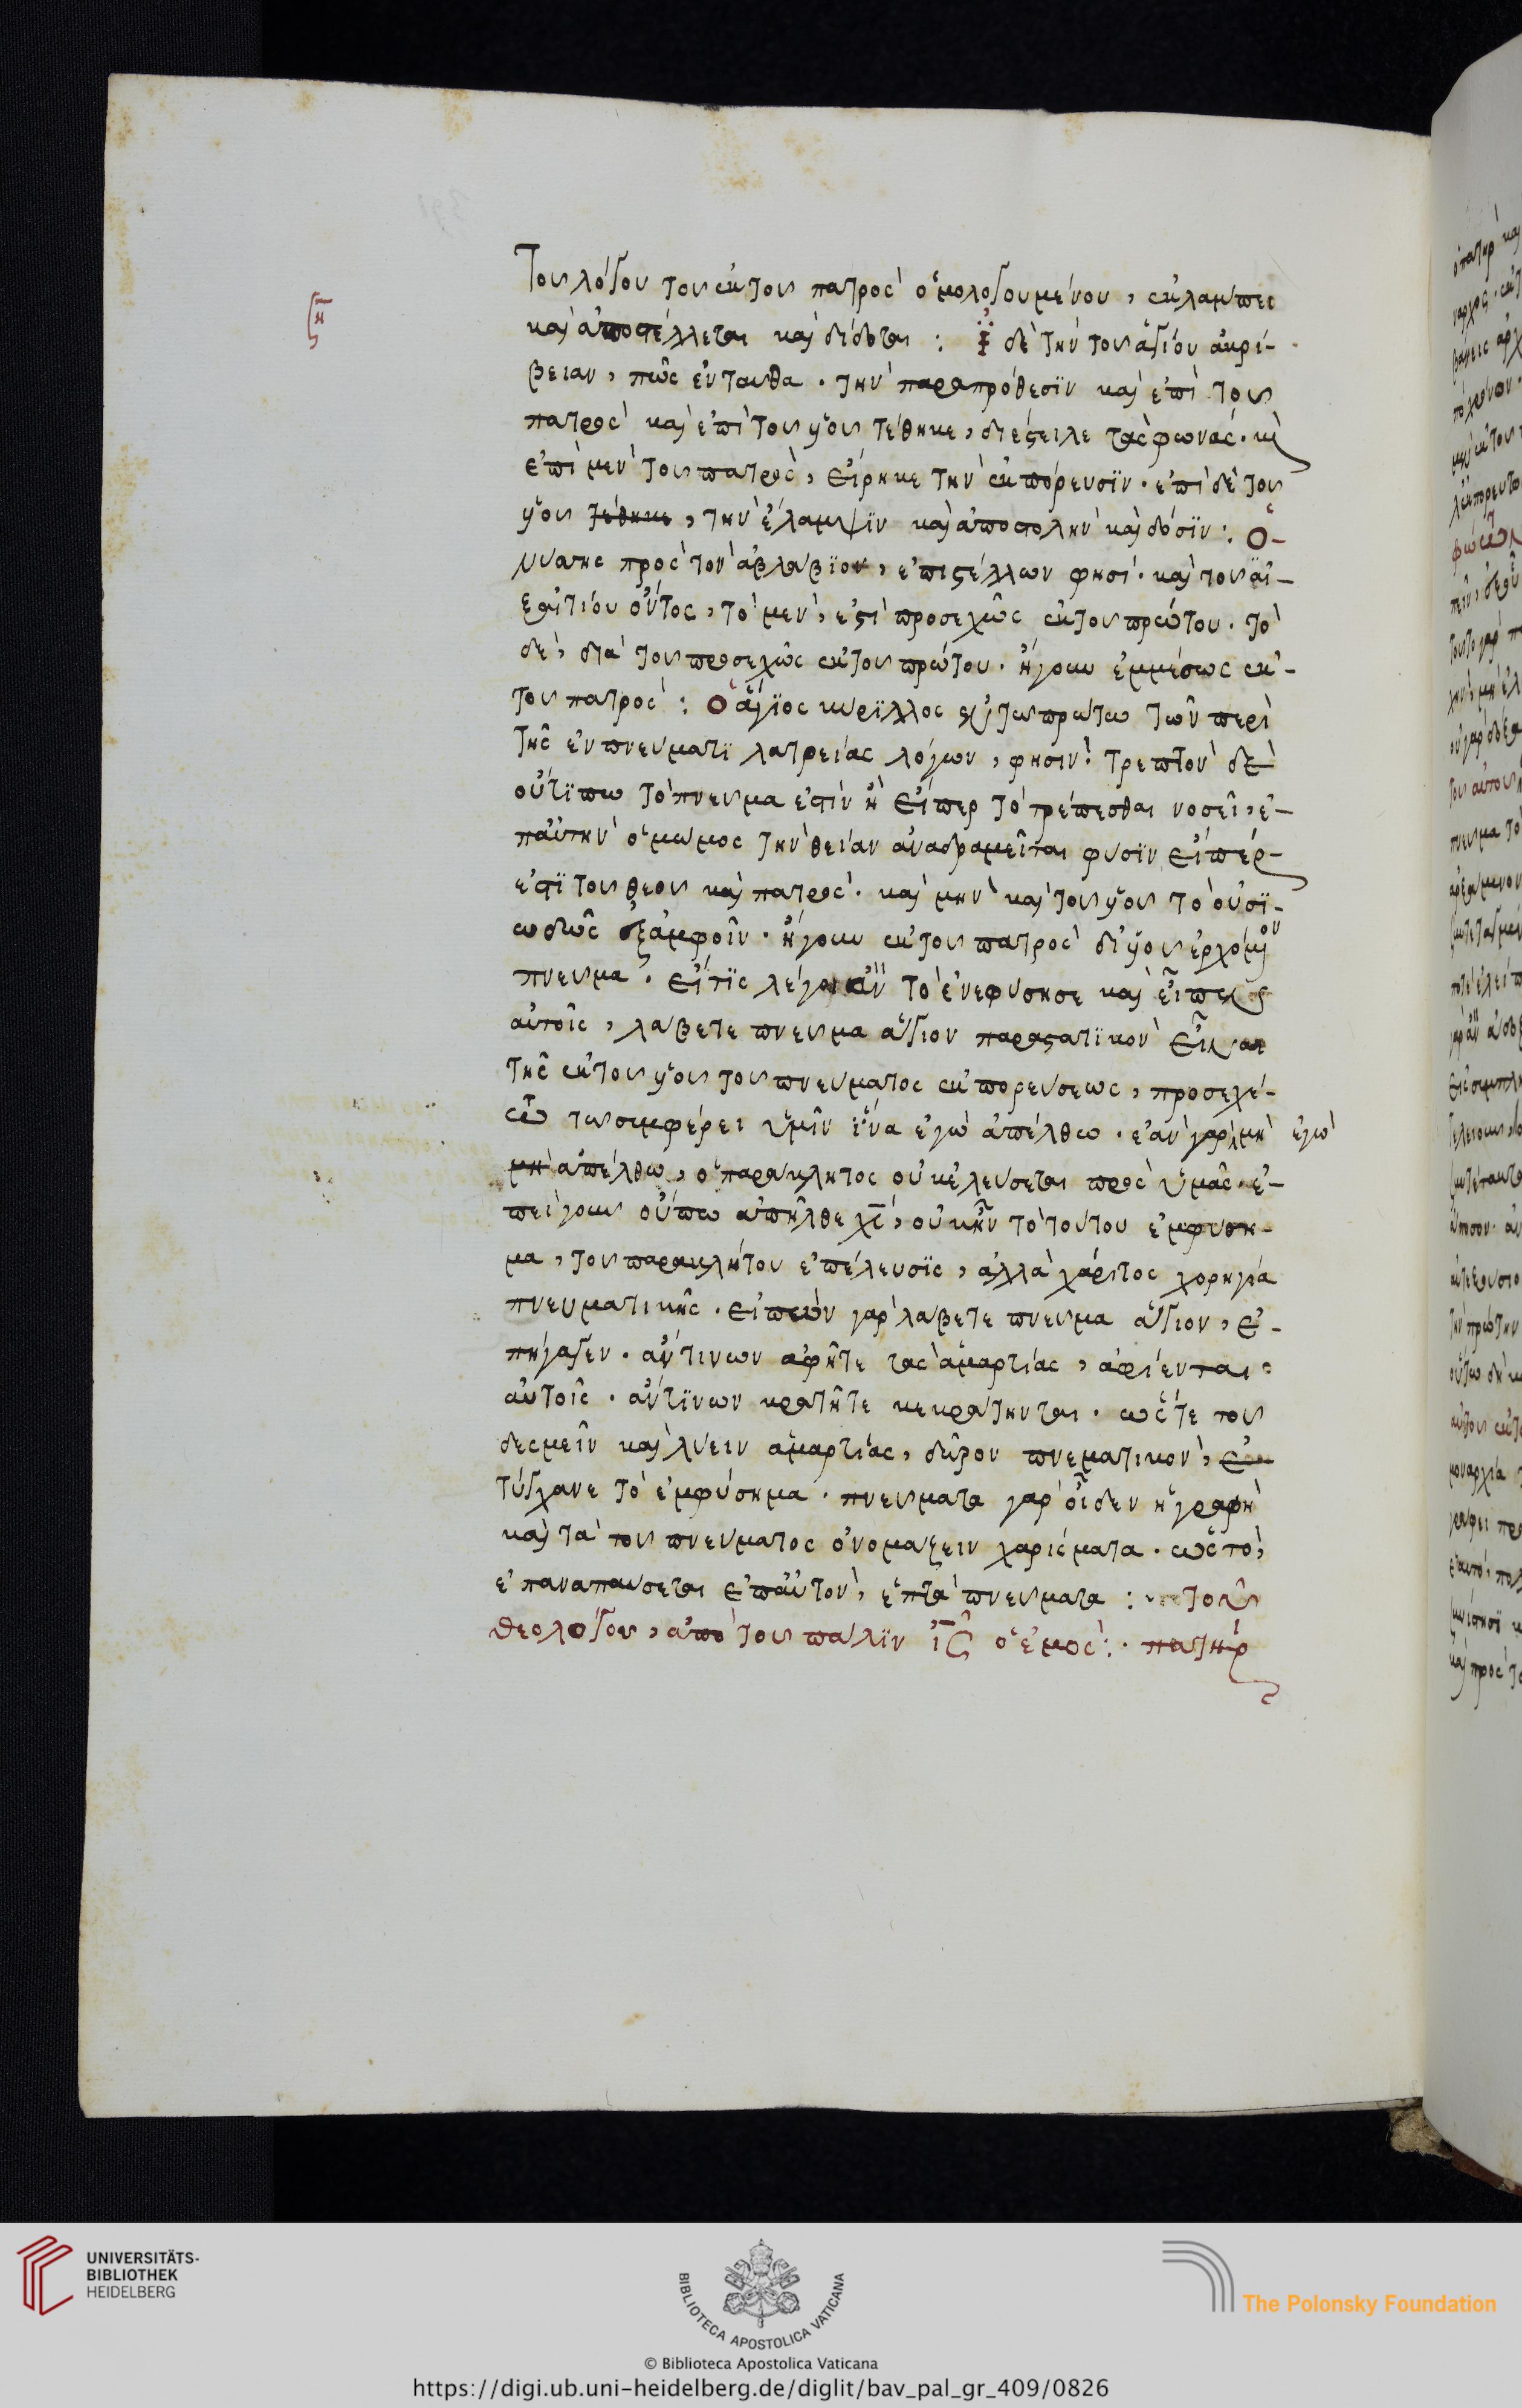 τοῦ λόγου τοῦ ἐκ τοῦ πατρὸς ὁμολογουμένου, ἐκλάμπει
καὶ ἀποστέλλεται καὶ δίδοται : δὲ τὴν τοῦ ἁγίου ἀκρί-
βειαν, πῶς ἐνταυθα . τὴν παρα πρόθεσϊν καὶ ἐπὶ τοῦ
πατρὸς καὶ ἐπὶ τοῦ υἱοῦ τέθηκε, διέστειλε τὰς φωνάς . κὶ
ἐπὶ μὲν τοῦ πατρὸς, εἴρηκε τὴν ἐκπόρευσϊν . ἐπὶ δὲ τοῦ
υἱοῦ τέθηκε, τὴν ἔλαμψϊν καὶ ἀποστολὴν καὶ δόσϊν : Ὁ
νύσης πρὸς τὸν ἀβλαβϊον, ἐπιστέλλων φησί . καὶ τοῦ αἰ-
εξ αἰτίου ὄντος, τὸ μὲν, ἐστὶ προσεχῶς ἐκ τοῦ πρώτου . τὸ
δὲ, διὰ τοῦ προσεχῶς ἐκ τοῦ πρώτου . ἤγουν ἐμμέσως ἐκ-
τοῦ πατρὸς : Ὁ ἅγϊος κυρϊλλος ἐν τῶ πρωτω τῶν περὶ
τῆς ἐν πνευματϊ λατρείας λόγων, φησιν : τρεπτὸν δὲ
οὔτϊ πω τὸ πνευμα ἐστίν ἢ εἴπερ τὸ τρέπεσθαι νοσεῖ, ἐ-
π αὐτὴν ὁ μωμος τὴν θείαν ἀναδραμεῖται φυσϊν εἴπερ-
ἐστϊ τοῦ θεοῦ καὶ πατρὸς . καὶ μὴν καὶ τοῦ υἱοῦ τὸ οὐσϊ-
ωδῶς ἐξ ἀμφοῖν . ἤγουν ἐκ τοῦ πατρὸς δι' υἱοῦ ἐρχόμενον
πνευμα . εἴ τϊς λέγοι ἂν τὸ ἐνεφυσησε καὶ εἶπεν
αὐτοῖς, λαβετε πνευμα ἅγιον παραστατϊκὸν εἶναι
τῆς ἐκ τοῦ υἱοῦ τοῦ πνευματος ἐκπορευσεως, προσεχέ-
τω τῶ συμφέρει ὑμῖν ἵνα ἐγὼ ἀπέλθω . ἐὰν γὰρ μὴ ἐγὼ
μὴ ἀπέλθω, ὁ παρακλητος οὐκ ἐλευσεται πρὸς ὑμᾶς . ἐ-
πεὶ γουν οὔπω ἀπῆλθε χς, οὐκ ἦν τὸ τούτου ἐμφυση-
μα, τοῦ παρακλήτου ἐπέλευσϊς, ἀλλὰ χάριτος χορηγία
πνευματικῆς . εἰπὼν γὰρ λαβετε πνευμα ἅγιον, ἐ-
πήγαγεν . ἄν τινων ἀφῆτε τὰς ἁμαρτίας, ἀφίενται,
αὐτοῖς . ἄν τϊνων κρατῆτε κεκρατηνται . ὥςτε τοῦ
δεσμεῖν καὶ λυειν ἁμαρτίας, δῶρον πνεματικὸν, ἐ
τύγχανε τὸ ἐμφύσημα . πνευματα γὰρ οἶδεν ἡ γραφὴ
καὶ τὰ τοῦ πνευματος ὀνομαζειν χαρίσματα . ὡς τὸ,
ἐπαναπαυσεται ἐπ αὐτὸν, ἑπτὰ πνευματα : τοῦ
θεολόγου, ἀπὸ τοῦ παλϊν ις ὁ ἐμὸς : πατὴρ
UNIVERSITÄTS-
BIBLIOTHEK
HEIDELBERG
BIBLIOTECA APOSTOLICA VATICANA
The Polonsky Foundation
© Biblioteca Apostolica Vaticana
https://digi.ub.uni-heidelberg.de/diglit/bav_pal_gr_409/0826